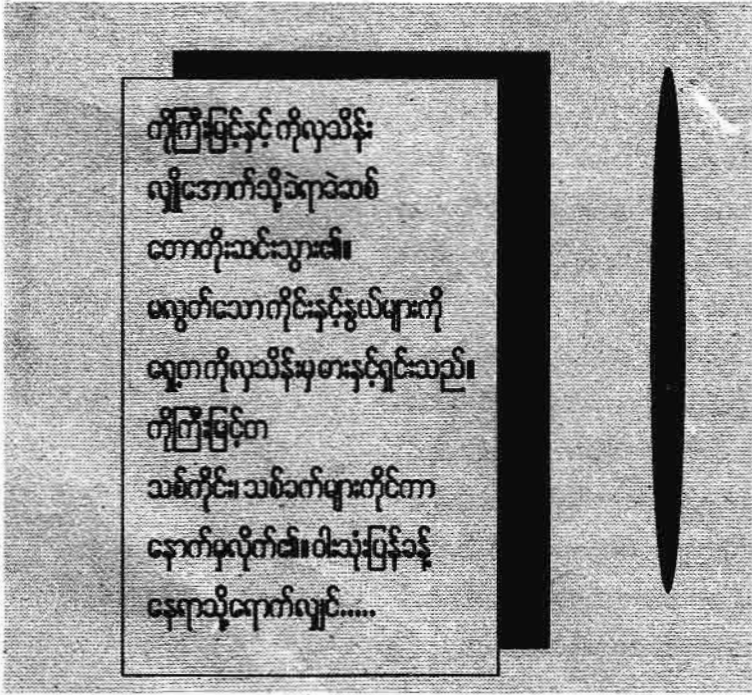 ကိုကြီးမြင့်နှင့် ကိုလှသိန်း
လျှိုအောက်သို့ခဲရာခဲဆစ်
တောတိုးဆင်းသွား၏။
မလွတ်သော ကိုင်းနှင့်နွယ်များကို
ရှေ့က ကိုလှသိန်းမှ ဓားနှင့်ရှင်းသည်။
ကိုကြီးမြင့်က
သစ်ကိုင်း၊ သစ်ခက်များကိုင်ကာ
နောက်မှလိုက်၏။ ဝါးသုံးပြန်ခန့်
နေရာသို့ရောက်လျှင်.....